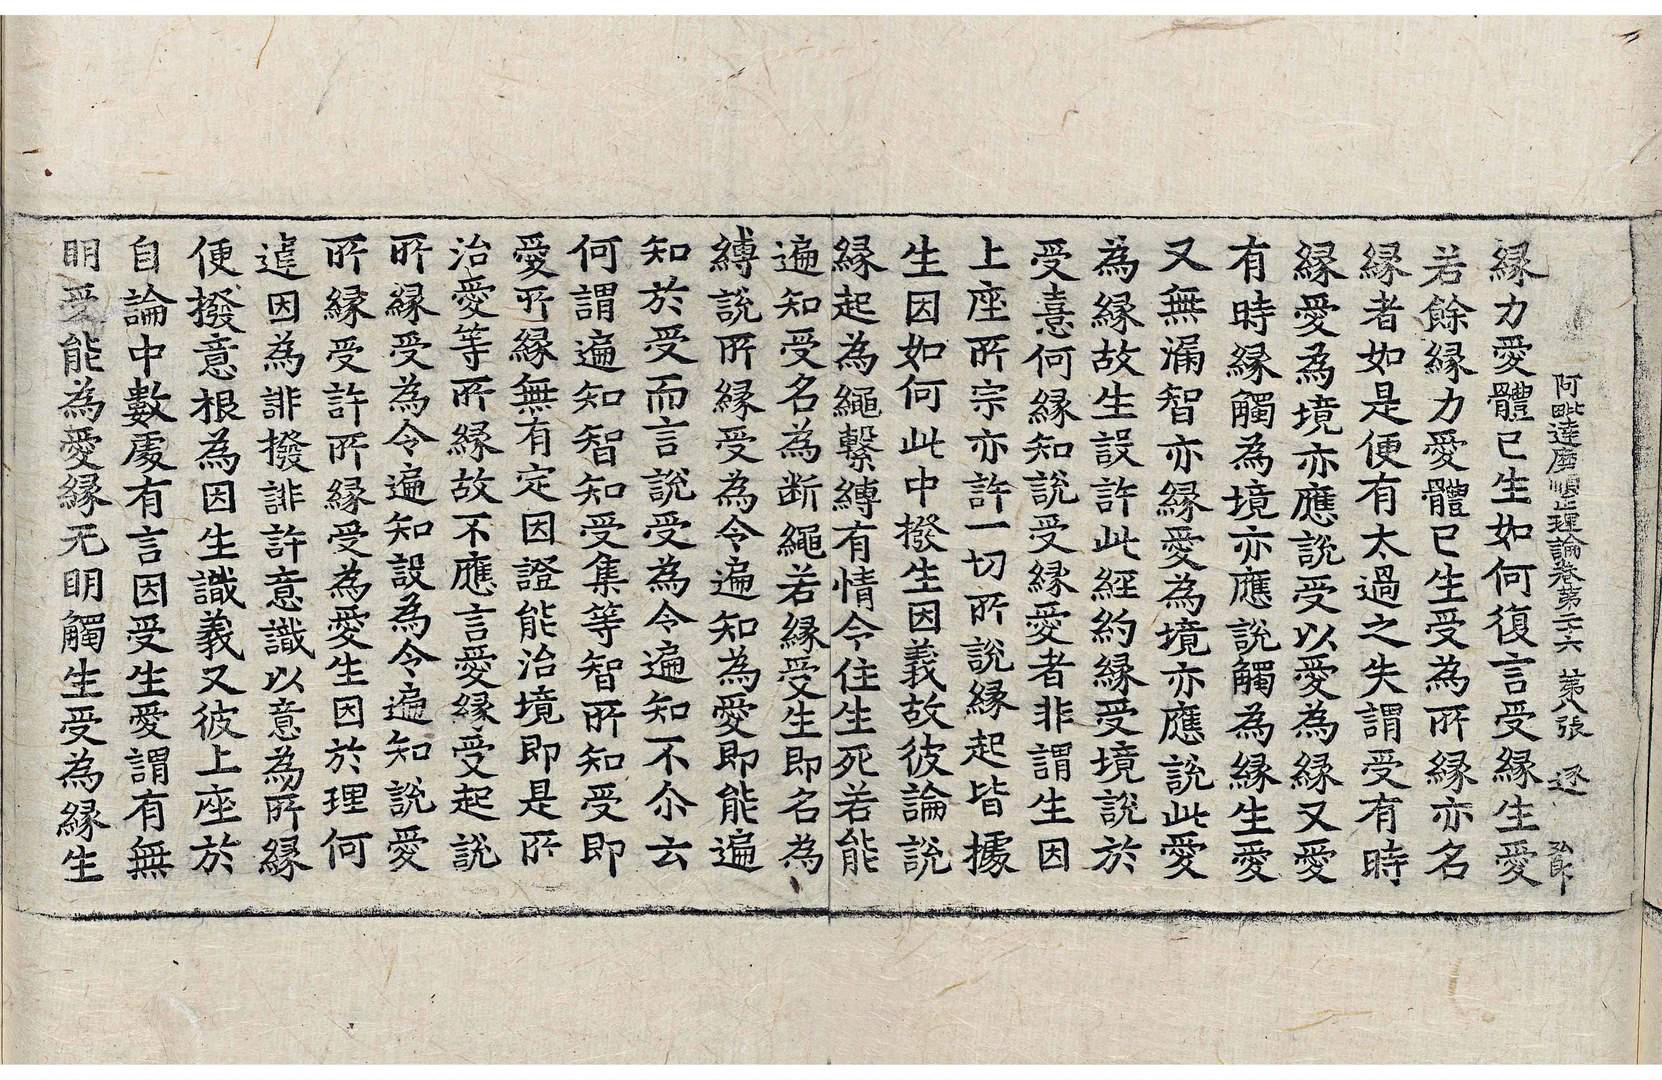 阿毗達磨順正理論卷第二十六 第八張 逐 弘郎
縁力愛體已生如何復言受縁生愛
若餘縁力愛體已生受為所縁亦名
縁者如是便有太過之失謂受有時
縁愛為境亦應說受以愛為縁又愛
有時縁觸為境亦應說觸為縁生愛
又無漏智亦縁愛為境亦應說此愛
為縁故生設許此經約縁受境說於
受憙何縁知說受縁愛者非謂生因
上座所宗亦許一切所說縁起皆據
生因如何此中撥生因義故彼論說
縁起為繩繫縛有情令住生死若能
遍知受名為断繩若縁受生即名為
縛說所縁受為令遍知為愛即能遍
知於受而言說受為令遍知不尒云
何謂遍知智知受集等智所知受即
愛所縁無有定因證能治境即是所
治愛等所縁故不應言愛縁受起說
所縁受為令遍知設為令遍知說愛
所縁受許所縁受為愛生因於理何
違因為誹撥誹許意識以意為所縁
便撥意根為因生識義又彼上座於
自論中數處有言因受生愛謂有無
明受能為愛縁无明觸生受為縁生